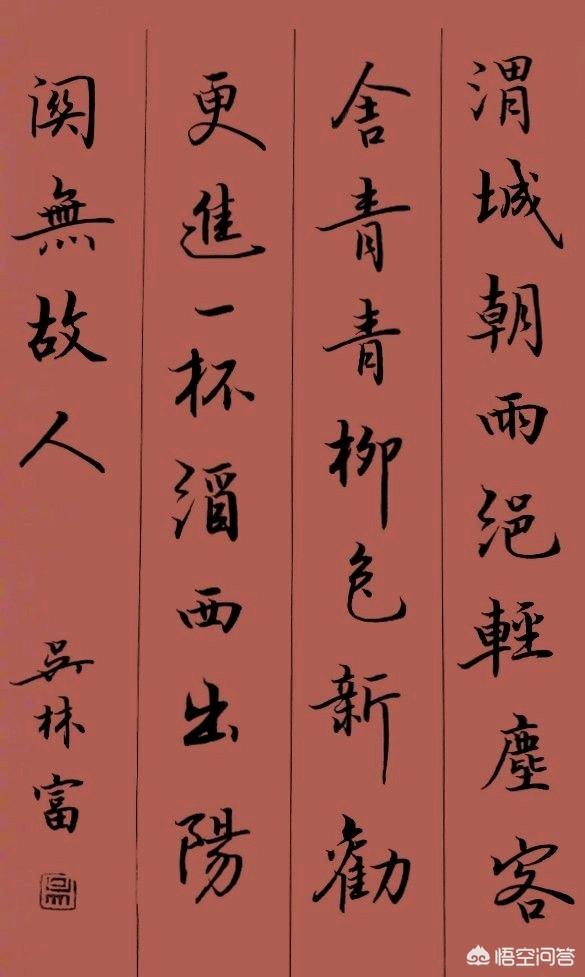 渭城朝雨浥輕塵客
舍青青柳色新勸
更進一杯酒西出陽
関無故人
吳林富
悟空问答